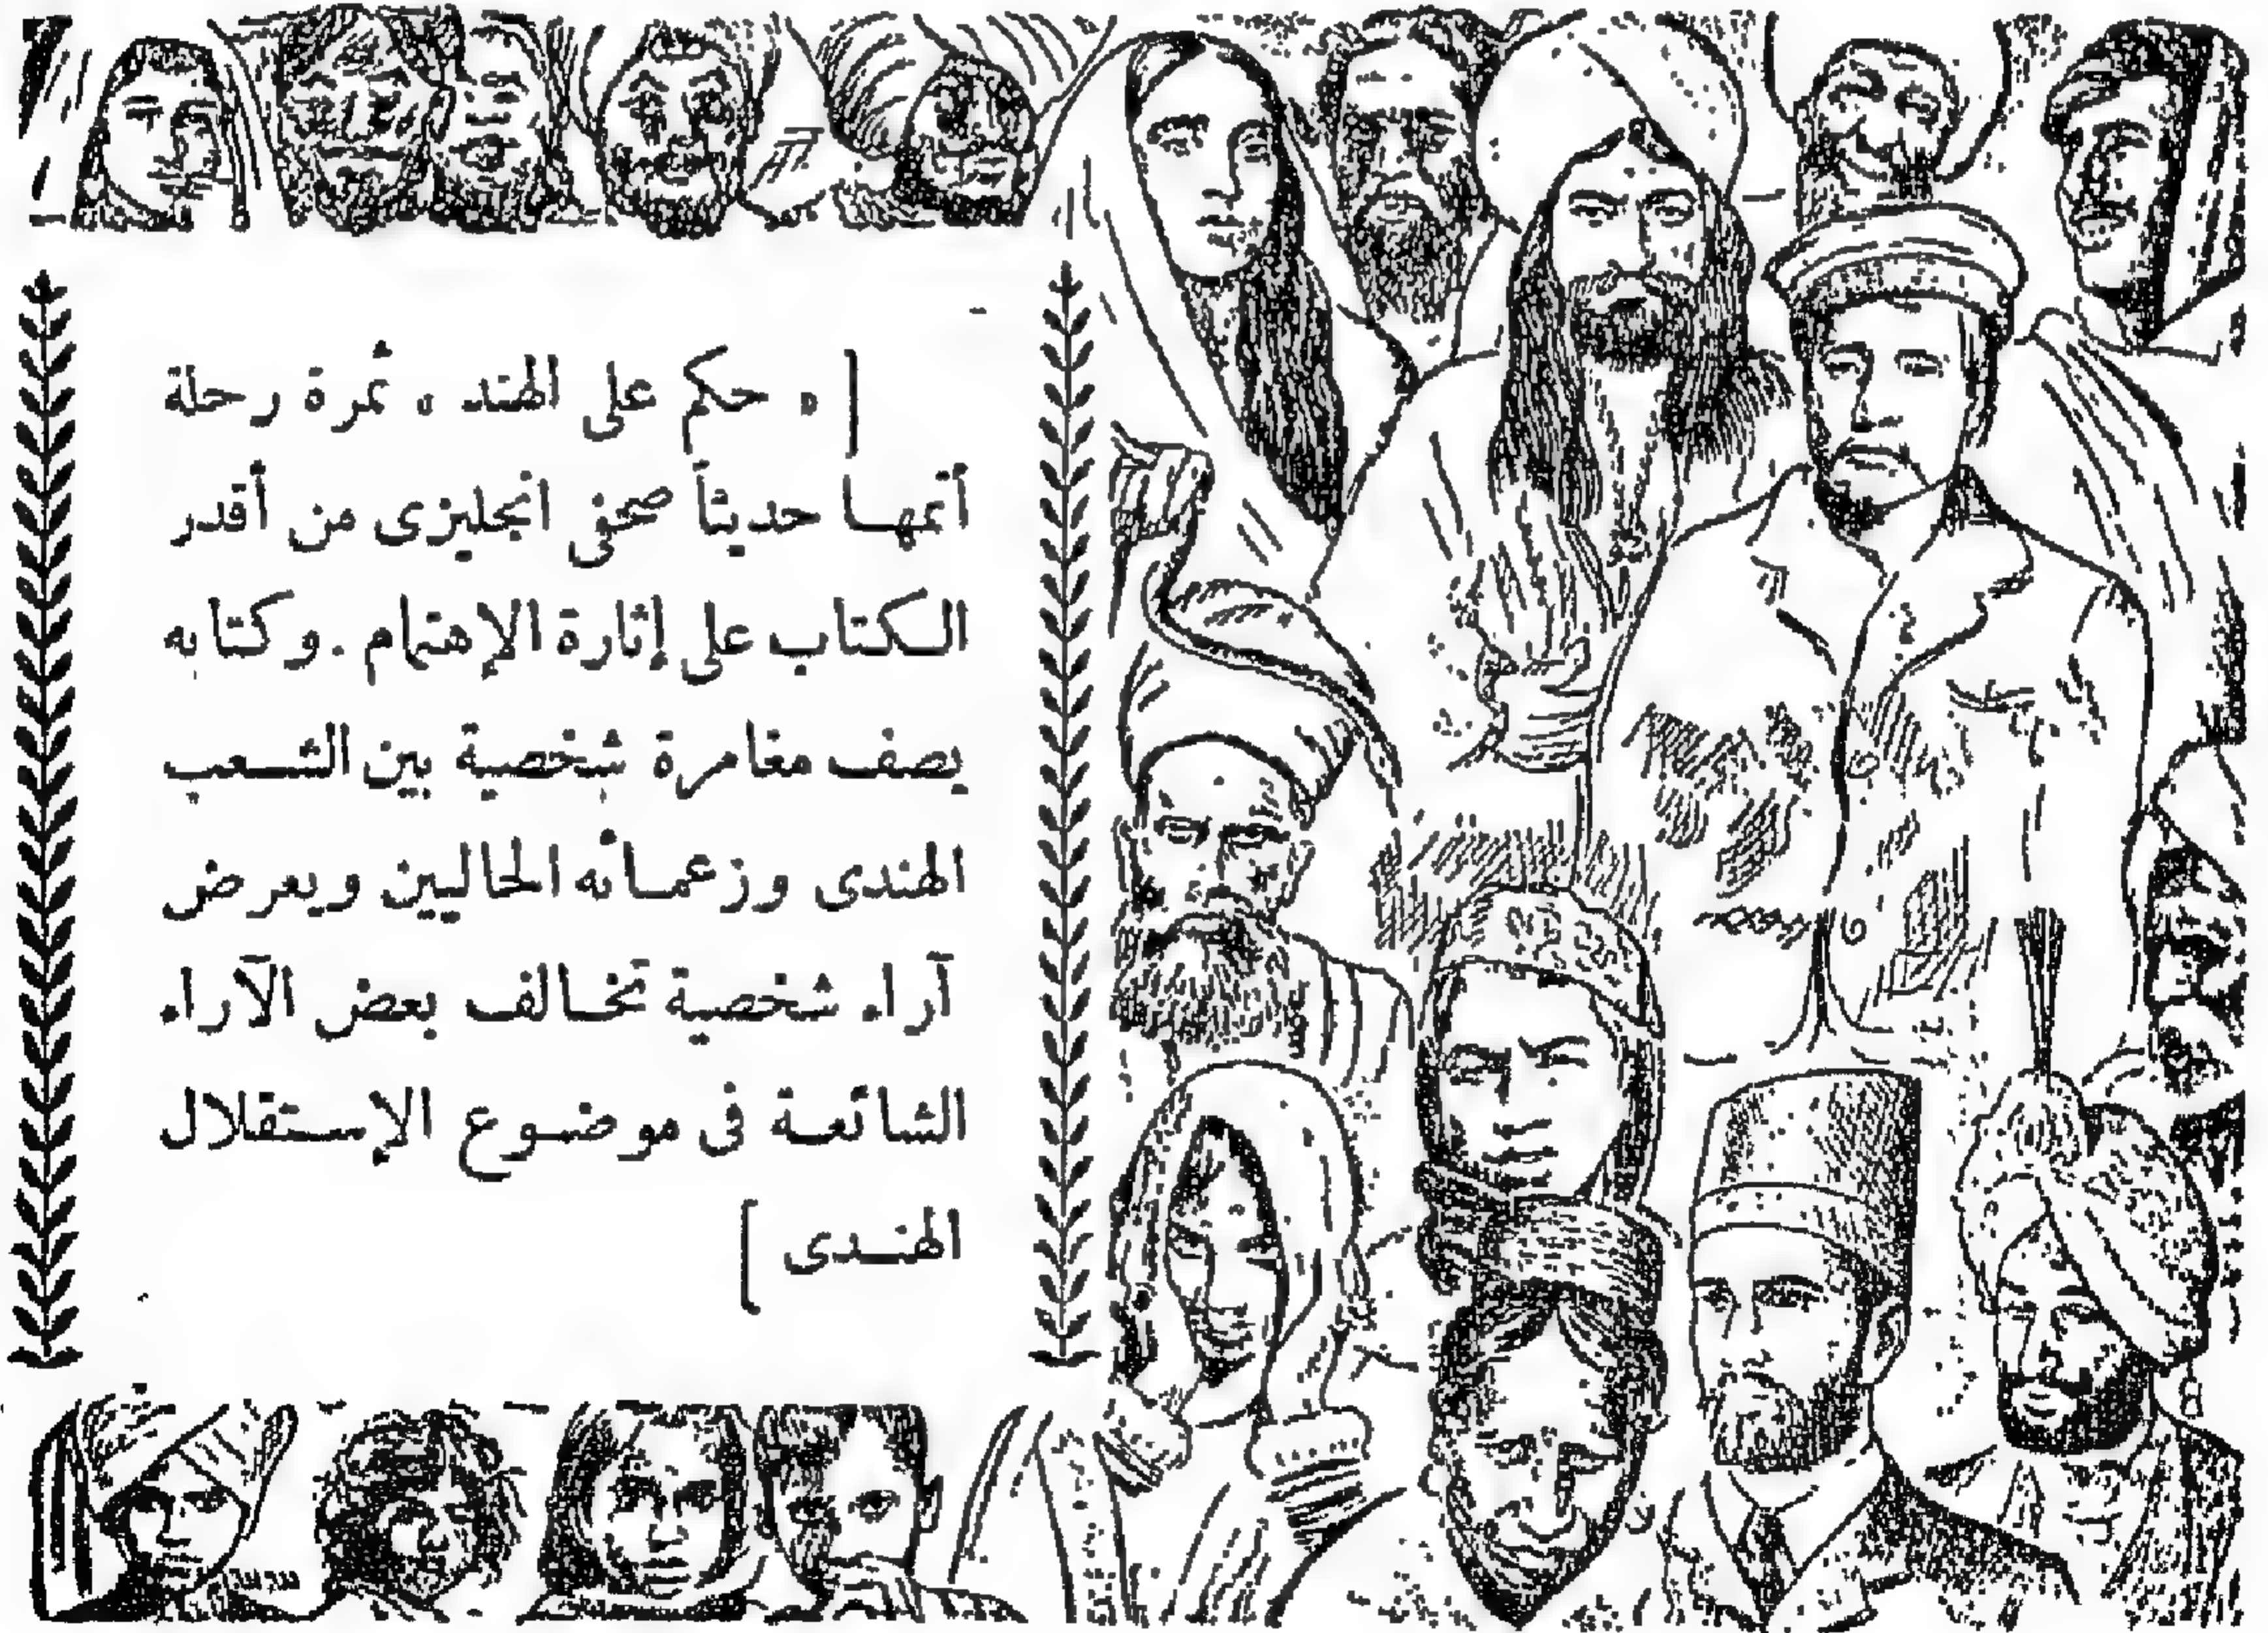 [ « حكم على الهند » ثمرة رحلة
أتمهـا حديثاً صحفى انجليزى من أقدر
الـكتاب على إثارة الإهتمام . وكتابه
يصف مغامرة شخصية بين الشـعب
الهندى وزعمـائه الحاليين ويعرض
آراء شخصية تخـالف بعض الآراء
الشائعـة فى موضـوع الإسـتقلال
الهنـدى ]